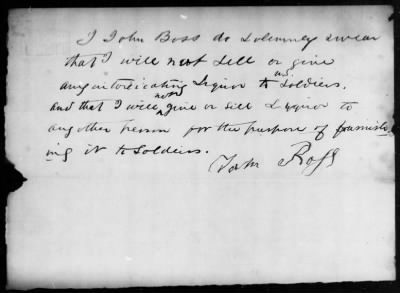 I John Boss do Solemney swear
that I will not Sell or give
any intoxicating Liquor to Soldiers.
and that I will not give or sell Liquor to
any other person for the purpose of furnish
ing it to Soldiers.
John Ross